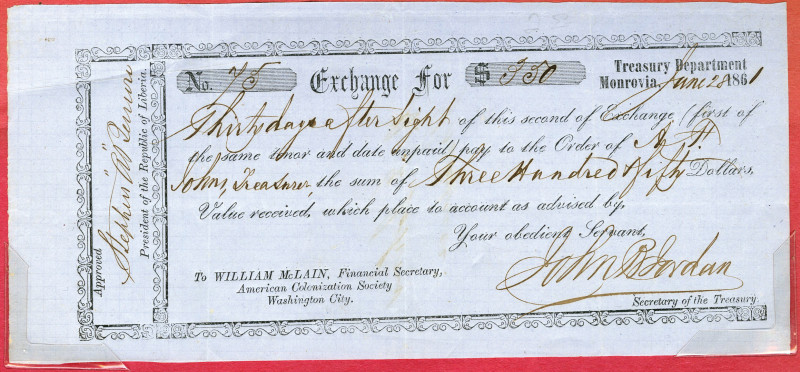 No. 75 Exchange For $ 350
Treasury Department
Monrovia, June 28 1861
Thirty days after Sight of this second of Exchange (first of
the same tenor and date unpaid) pay to the Order of A. F.
Johns, Treasurer, the sum of Three Hundred & fifty Dollars,
Value received, which place to account as advised by,
Your obedient Servant,
John B Jordan
Secretary of the Treasury.
To WILLIAM McLAIN, Financial Secretary,
American Colonization Society
Washington City.
Approved
Stephen A Benson
President of the Republic of Liberia.